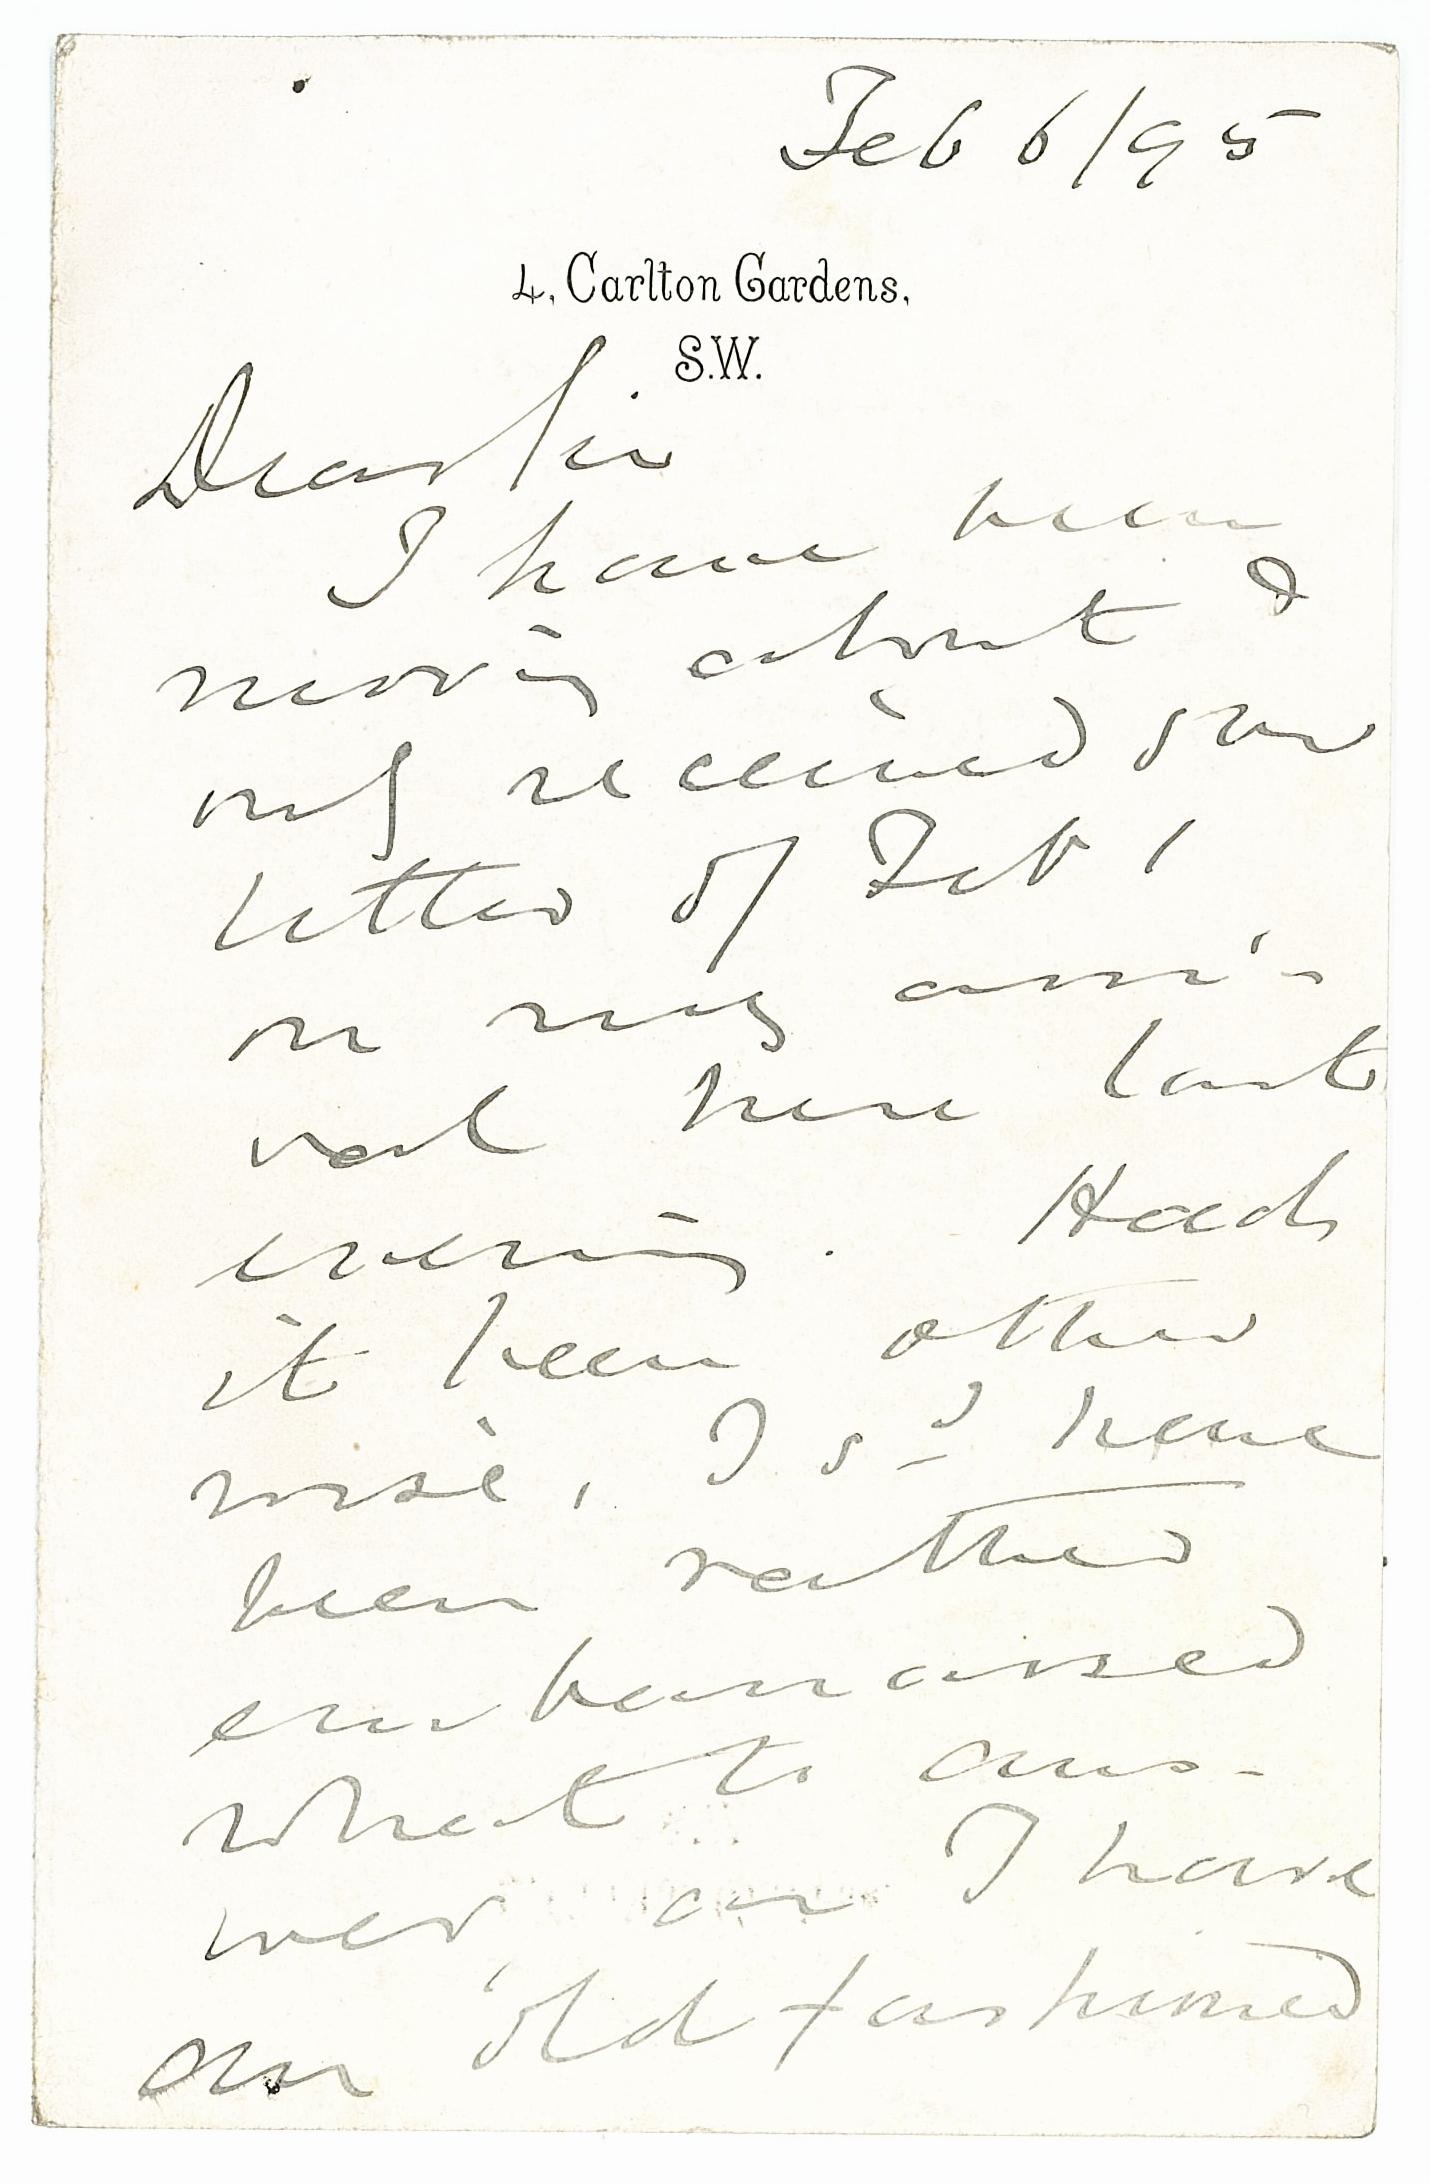 Feb 6/95
4, Carlton Gardens,
S.W.
Dear Sir
I have been
moving about &
only received your
letter of Feb 1
on my arri-
val here last
evening. Had
it been other
wise, I sd have
been rather
embarrassed
what to ans-
wer, as I have
an old fashioned